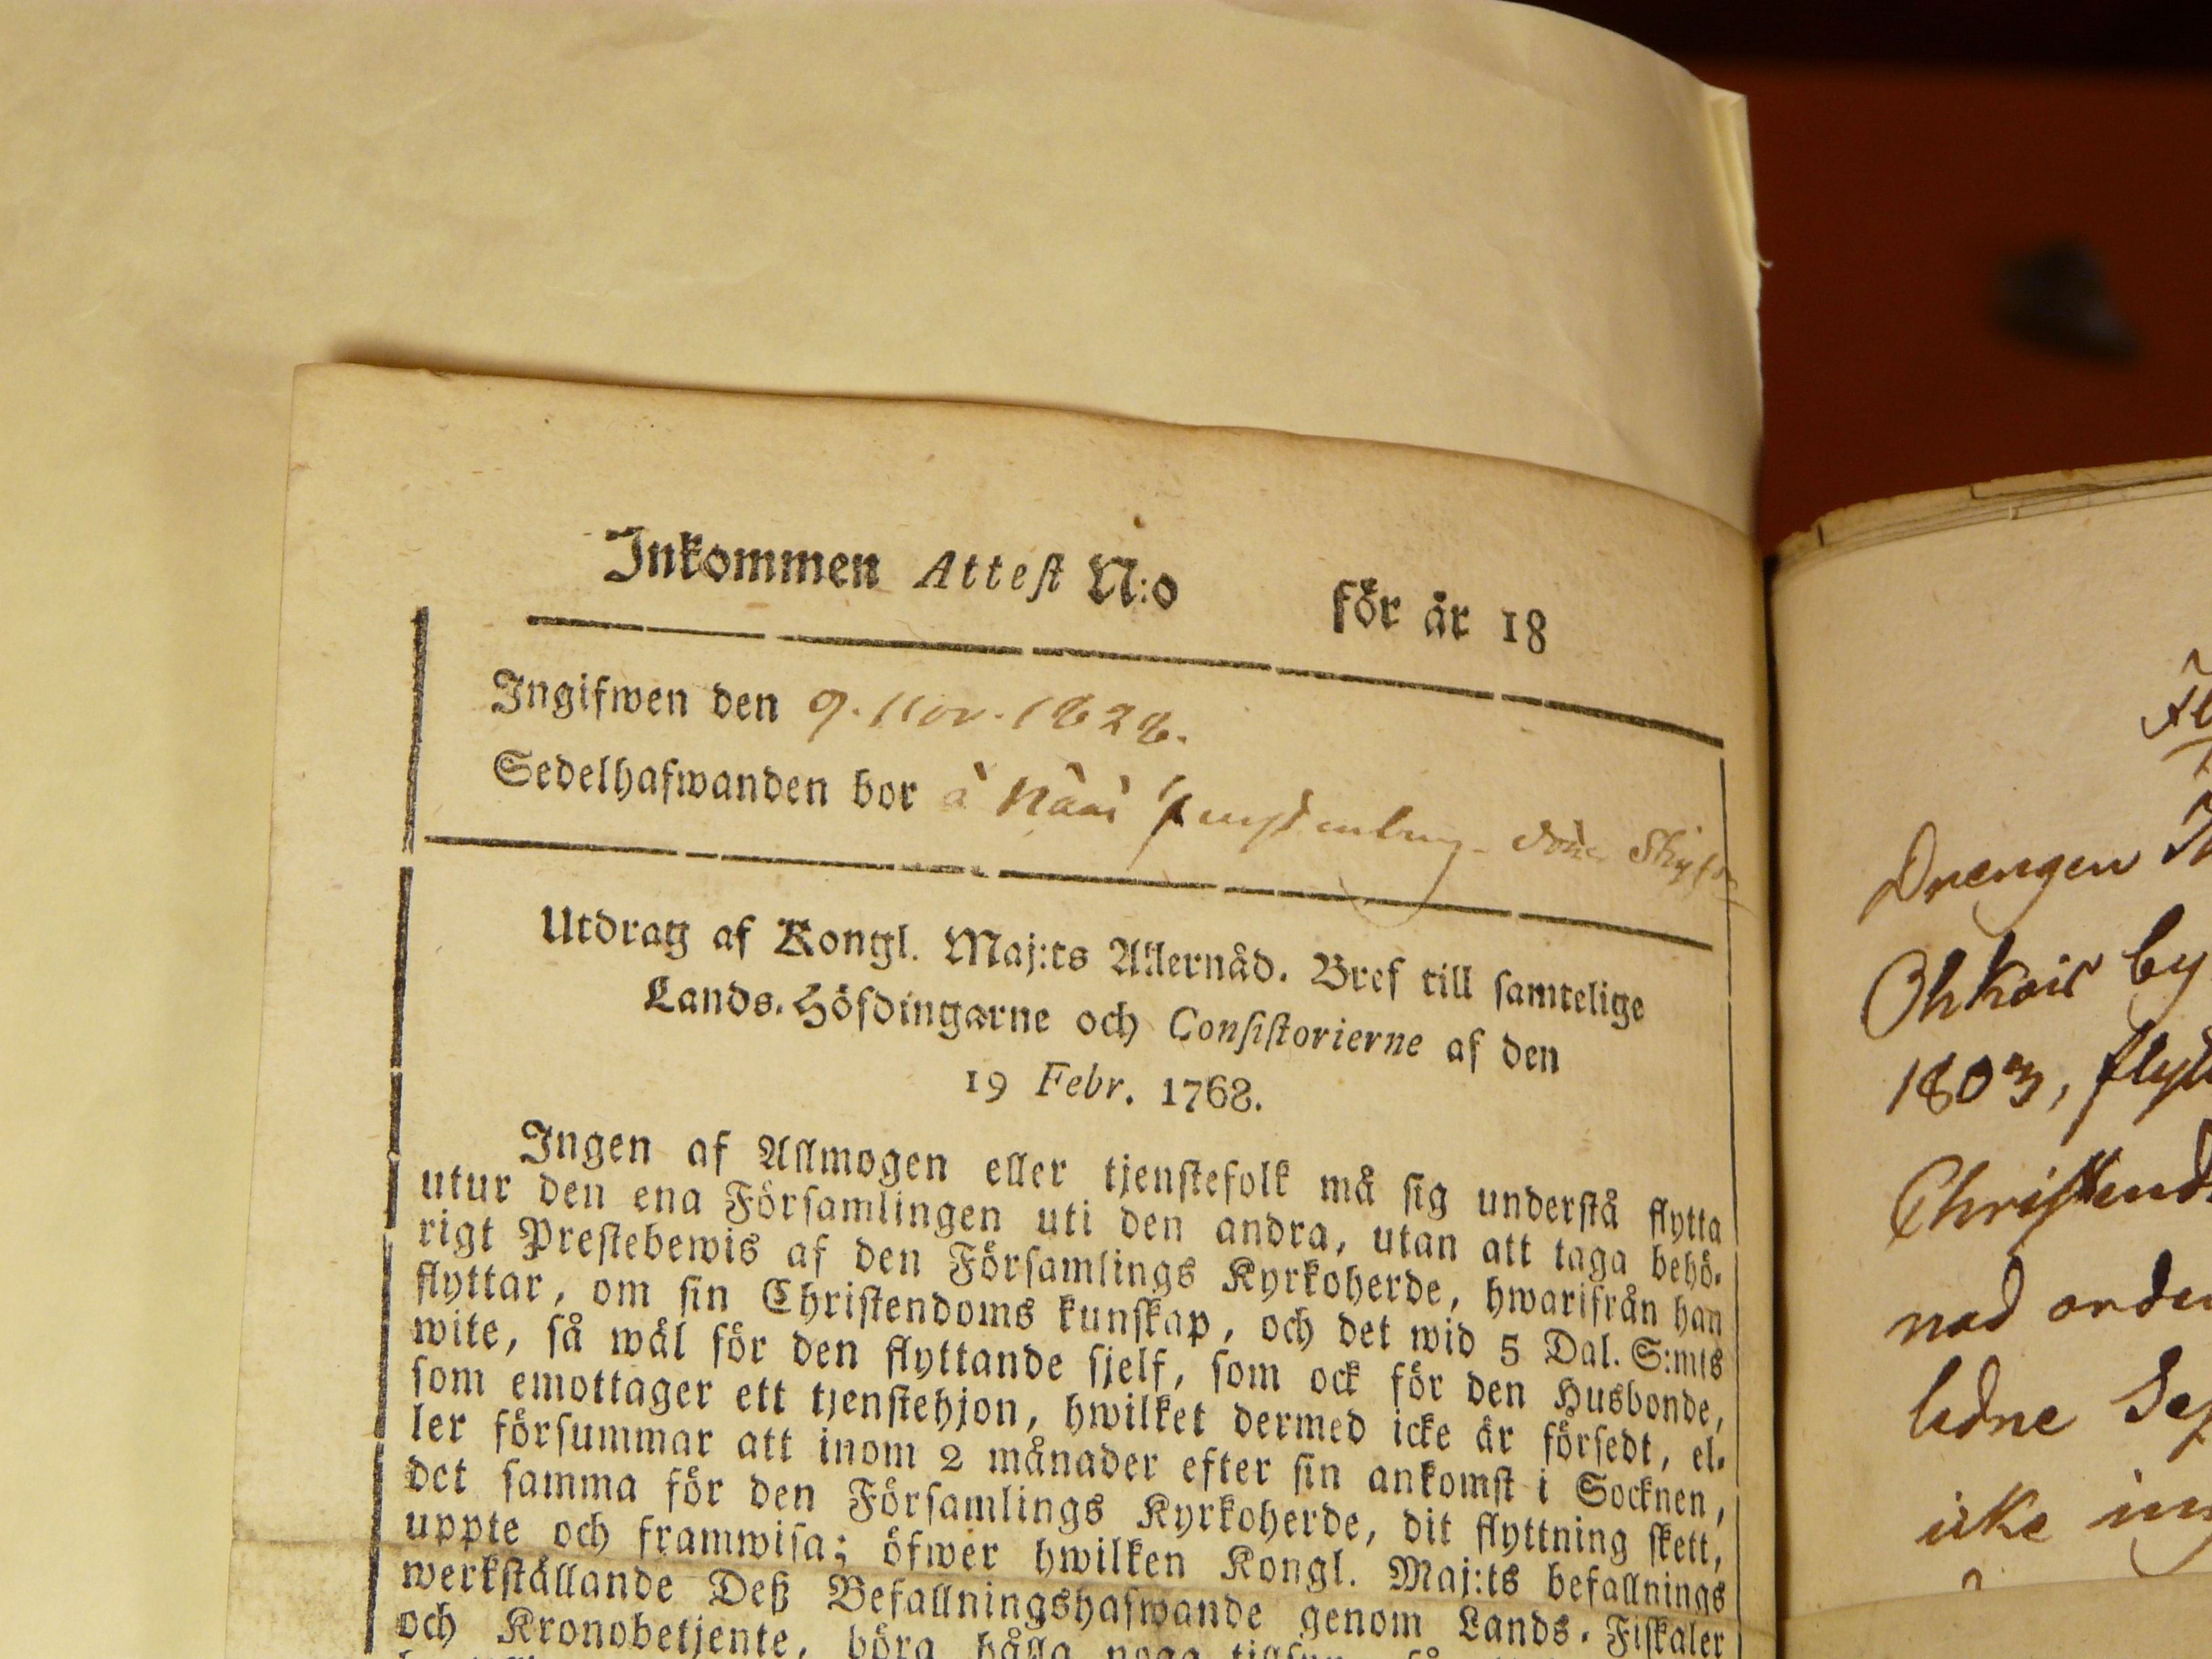 Inkommen Attest N:o för år 18
Ingifwen den 9. Nov. 1828.
Sedelhafwanden bor à
Utdrag af Kongl. Maj:ts Allernåd. Bref till samtelige
Lands-Höfdingarne och Consistorierne af den
19 Febr. 1768.
Ingen af Allmogen eller tjenstefolk må sig understå flytta
utur den ena Församlingen uti den andra, utan att taga behö-
rigt Prestebewis af den Församlings Kyrkoherde, hwarifrån han
flyttar, om sin Christendoms kunskap, och det wid 5 Dal. S:mts
wite, så wäl för den flyttande sjelf, som ock för den Husbonde,
som emottager ett tjenstehjon, hwilket dermed icke är försedt, el-
ler försummar att inom 2 månader efter sin ankomst i Socknen,
det samma för den Församlings Kyrkoherde, dit flyttning skett,
uppte och framwisa; öfwer hwilken Kongl. Maj:ts befallnings
werkställande Deß Befallningshafwande genom Lands-Fiskaler
och Kronobetjente, böra hålla noga
Drengen
Ohkois by
1803, flytt
Christend
nad orden
ledne Sep
icke